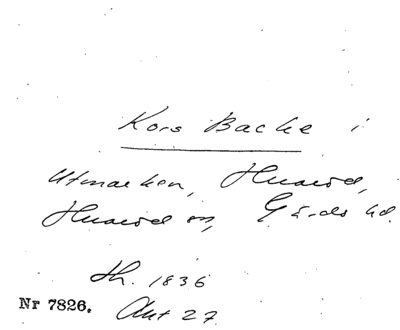 Kors Backe i
Utmarken, Huaröd,
Huaröd sn, Gärds hd.
h. 1836
Nr 7826. Akt 27